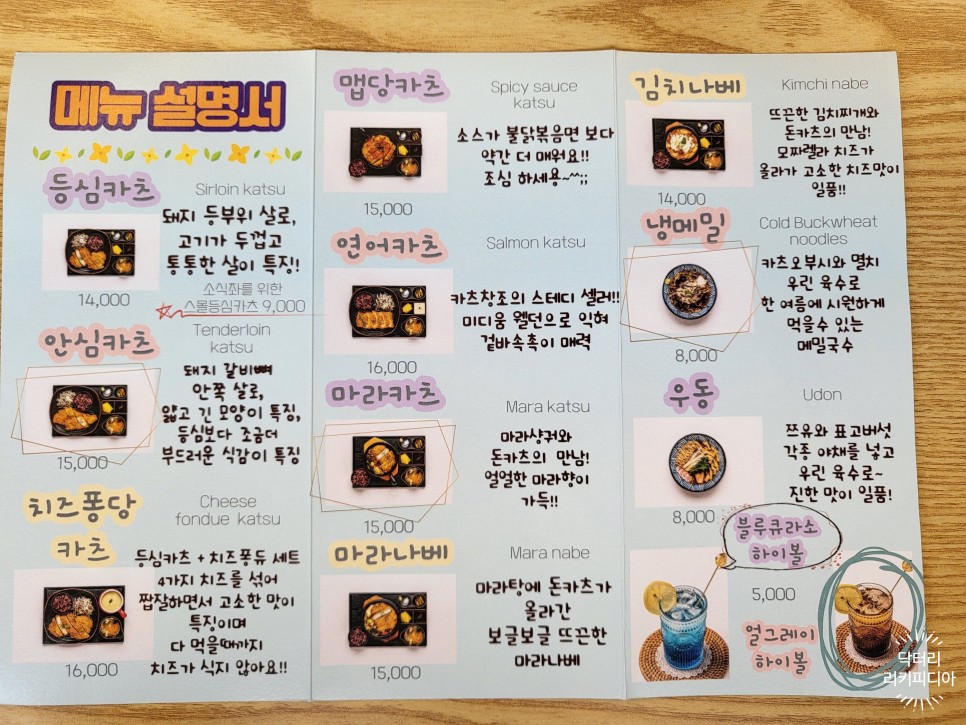 메뉴 설명서
등심카츠
Sirloin katsu
돼지 등부위 살로,
고기가 두껍고
통통한 살이 특징!
14,000
소식좌를 위한
스몰등심카츠 9,000
안심카츠
Tenderloin
katsu
돼지 갈비뼈
안쪽 살로,
얇고 긴 모양이 특징,
등심보다 조금더
부드러운 식감이 특징
15,000
치즈퐁당
카츠
Cheese
fondue katsu
등심카츠 + 치즈퐁듀 세트
4가지 치즈를 섞어
짭잘하면서 고소한 맛이
특징이며
다 먹을때까지
치즈가 식지 않아요!!
16,000
맵당카츠
Spicy sauce
katsu
소스가 불닭볶음면 보다
약간 더 매워요!!
조심 하세용~^^;;
15,000
연어카츠
Salmon katsu
카츠창조의 스테디 셀러!!
미디움 웰던으로 익혀
겉바속촉이 매력
16,000
마라카츠
Mara katsu
마라샹궈와
돈카츠의 만남!
얼얼한 마라향이
가득!!
15,000
마라나베
Mara nabe
마라탕에 돈카츠가
올라간
보글보글 뜨끈한
마라나베
15,000
김치나베
Kimchi nabe
뜨끈한 김치찌개와
돈카츠의 만남!
모짜렐라 치즈가
올라가 고소한 치즈맛이
일품!!
14,000
냉메밀
Cold Buckwheat
noodles
카츠오부시와 멸치
우린 육수로
한 여름에 시원하게
먹을수 있는
메밀국수
8,000
우동
Udon
쯔유와 표고버섯
각종 야채를 넣고
우린 육수로~
진한 맛이 일품!
8,000
블루큐라소
하이볼
5,000
얼그레이
하이볼
닥터리
러키피디아